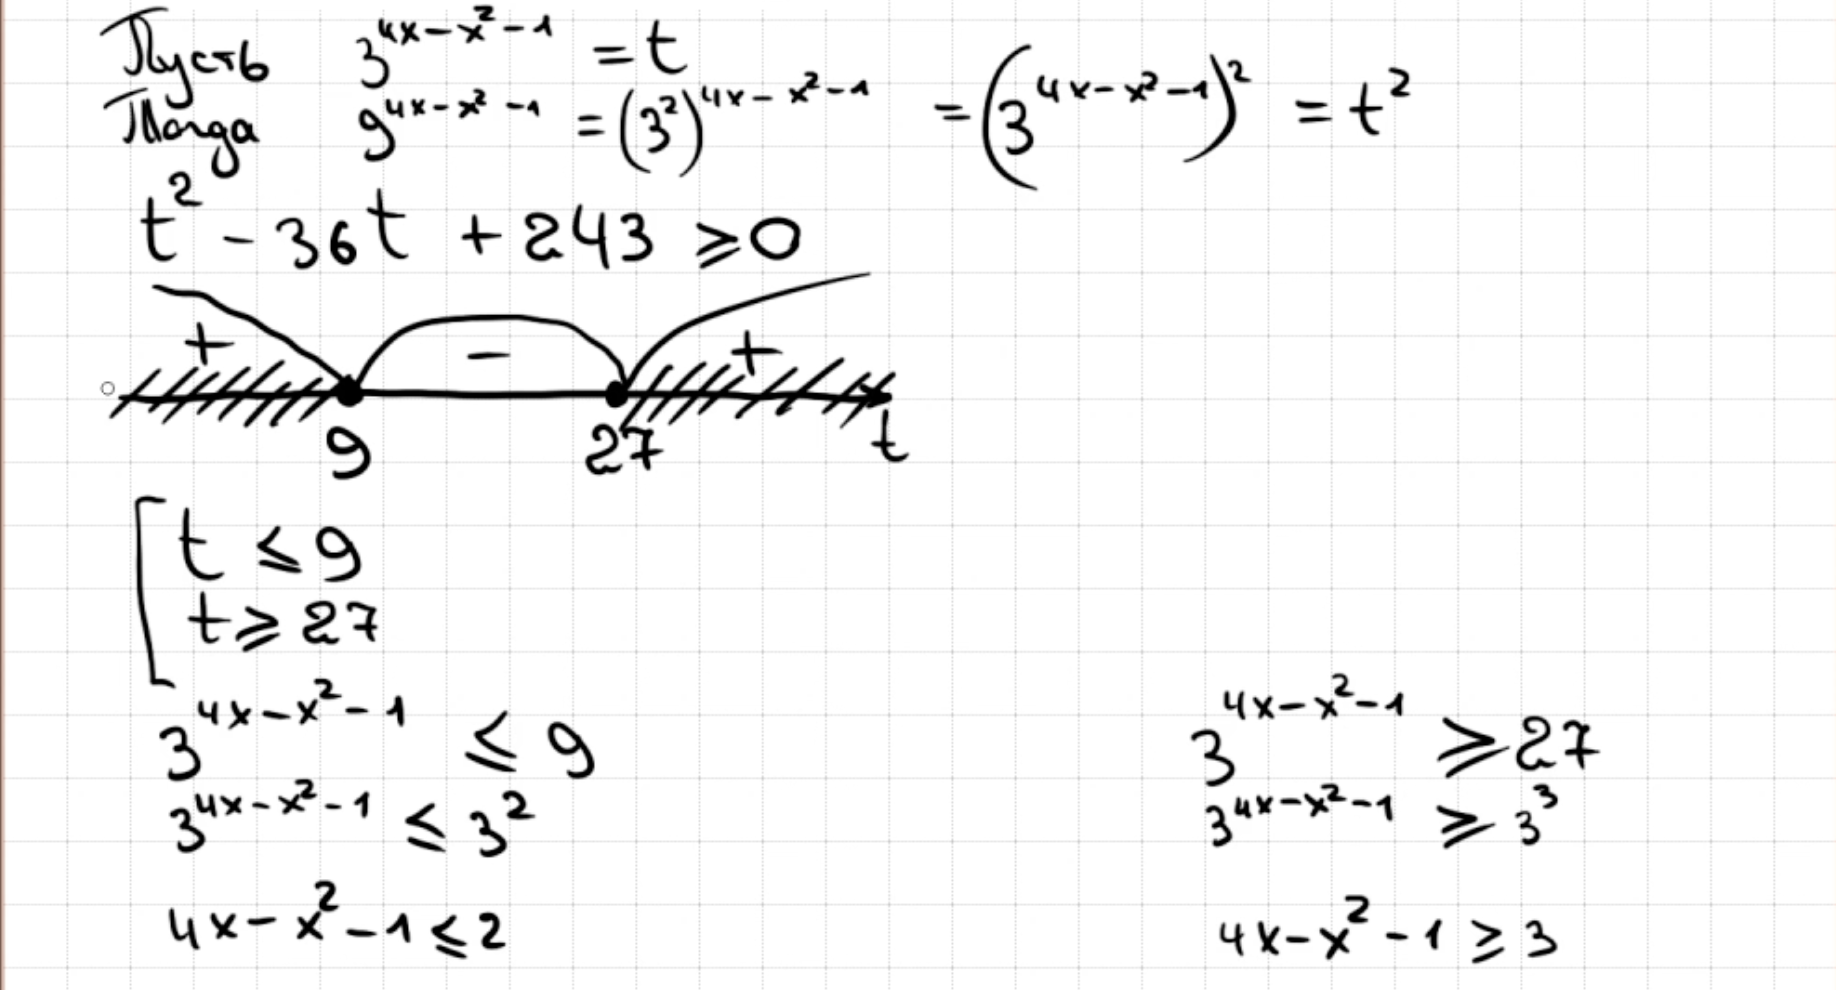 Пусть 3^{4x-x^2-1} = t
Тогда 9^{4x-x^2-1} = (3^2)^{4x-x^2-1} = (3^{4x-x^2-1})^2 = t^2
t^2 - 36t + 243 ⩾ 0
+ - +
9 27 t
[ t ⩽ 9
t ⩾ 27
3^{4x-x^2-1} ⩽ 9
3^{4x-x^2-1} ⩽ 3^2
4x-x^2-1 ⩽ 2
3^{4x-x^2-1} ⩾ 27
3^{4x-x^2-1} ⩾ 3^3
4x-x^2-1 ⩾ 3